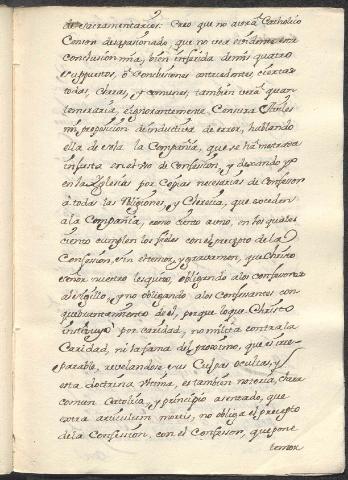 de Sacramentarios. Creo que no averà Catholico
Censor desapasionado, que no vea evidente esta
conclusion mia, bien inferida de mis quatro
supuestos, ò Conclusiones antecedentes, ciertas
todas, claras, y comunes, tambien verà quan
temeraria, è ignorantemente Censura
mi proposicion de inductiva de error, hablando
ella de esta la Compañia, que se ha metido
en el de Confession, y dexando yo
en la Yglesia por Copias necesarias de Confessores
à todas las Religiones, y Clerecia, que exceden
a la Compañia, como ciento a uno, en los quales
ciento cumplen los fieles con el precepto de la
Confession, sin el temor, y gravamen, que Christo
señor nuestro les quitò, obligando a los confessores
al sigillo, y no obligando a los Confesantes con
quebrantamiento de el, porque lo que Christo
instituyò por caridad, no milita contra la
Caridad, ni la fama del proximo, que es irre-
parable, revelandose sus Culpas ocultas, y
esta doctrina ultima, es tambien notoria, clara
comun Catolica, y principio asentado, que
extra articulum mortis, no obliga el precepto
de la Confession, con el Confessor, que pone
temor